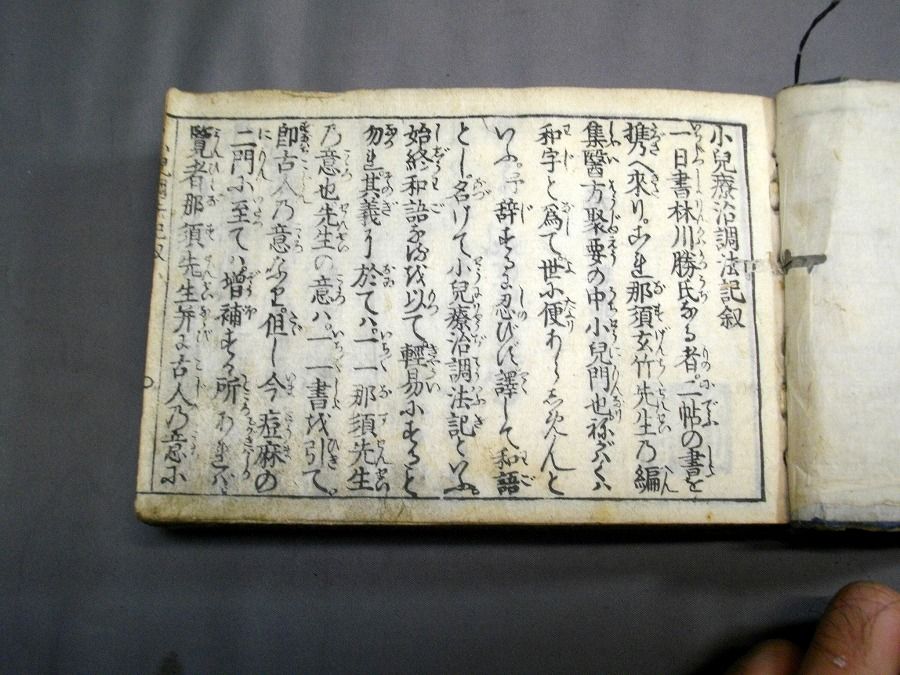 小兒療治調法記叙
一日書林川勝氏なる者。二帖の書を
携へ來り。これ那須玄竹先生乃編
集醫方聚要の中小兒門也。祢がハくハ
和字と為て世に便あらしめんと
いふ。予辞するに忍びに譯して和語
とし。名けて小兒療治調法記といふ。
始終和語なるを以て輕易にすること
勿れ其義に於てハ。一一那須先生
乃意也先生の意ハ。一一書を引て。
即古人乃意なり。但し今痘麻の
二門に至てハ増補する所あれバ
覽者那須先生并に古人乃意に